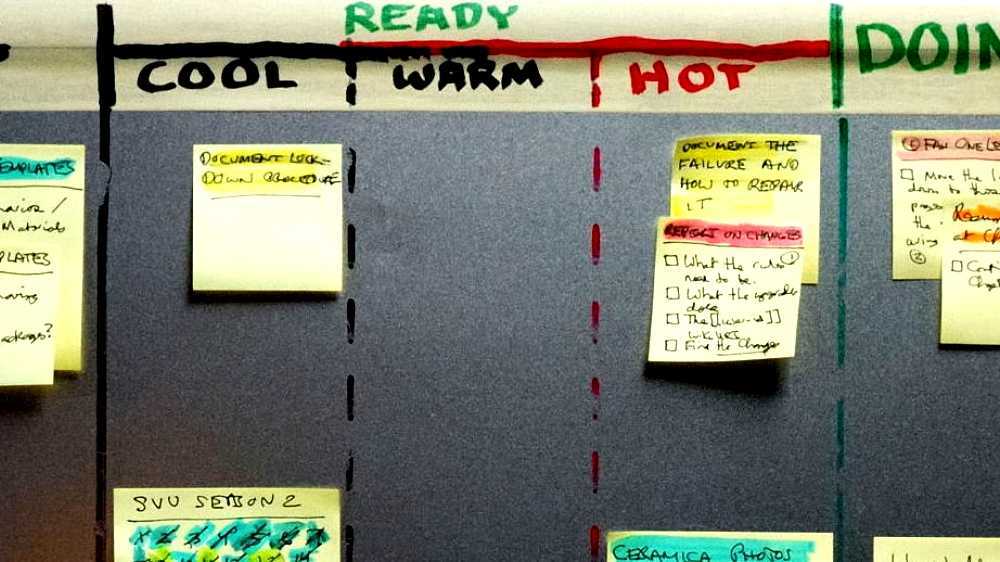 READY
COOL
WARM
HOT
DOIN
EMPLATES
Materials
PLATES
DOCUMENT LOCK-
DOWN PROCEDURE
DOCUMENT THE
FAILURE AND
HOW TO REPAIR
IT
REPORT ON CHANGES
What the rules
need to be.
What the
The
Find the Change
Move the
down to those
the
at
SVU SEASON 2
CERAMICA PHOTOS